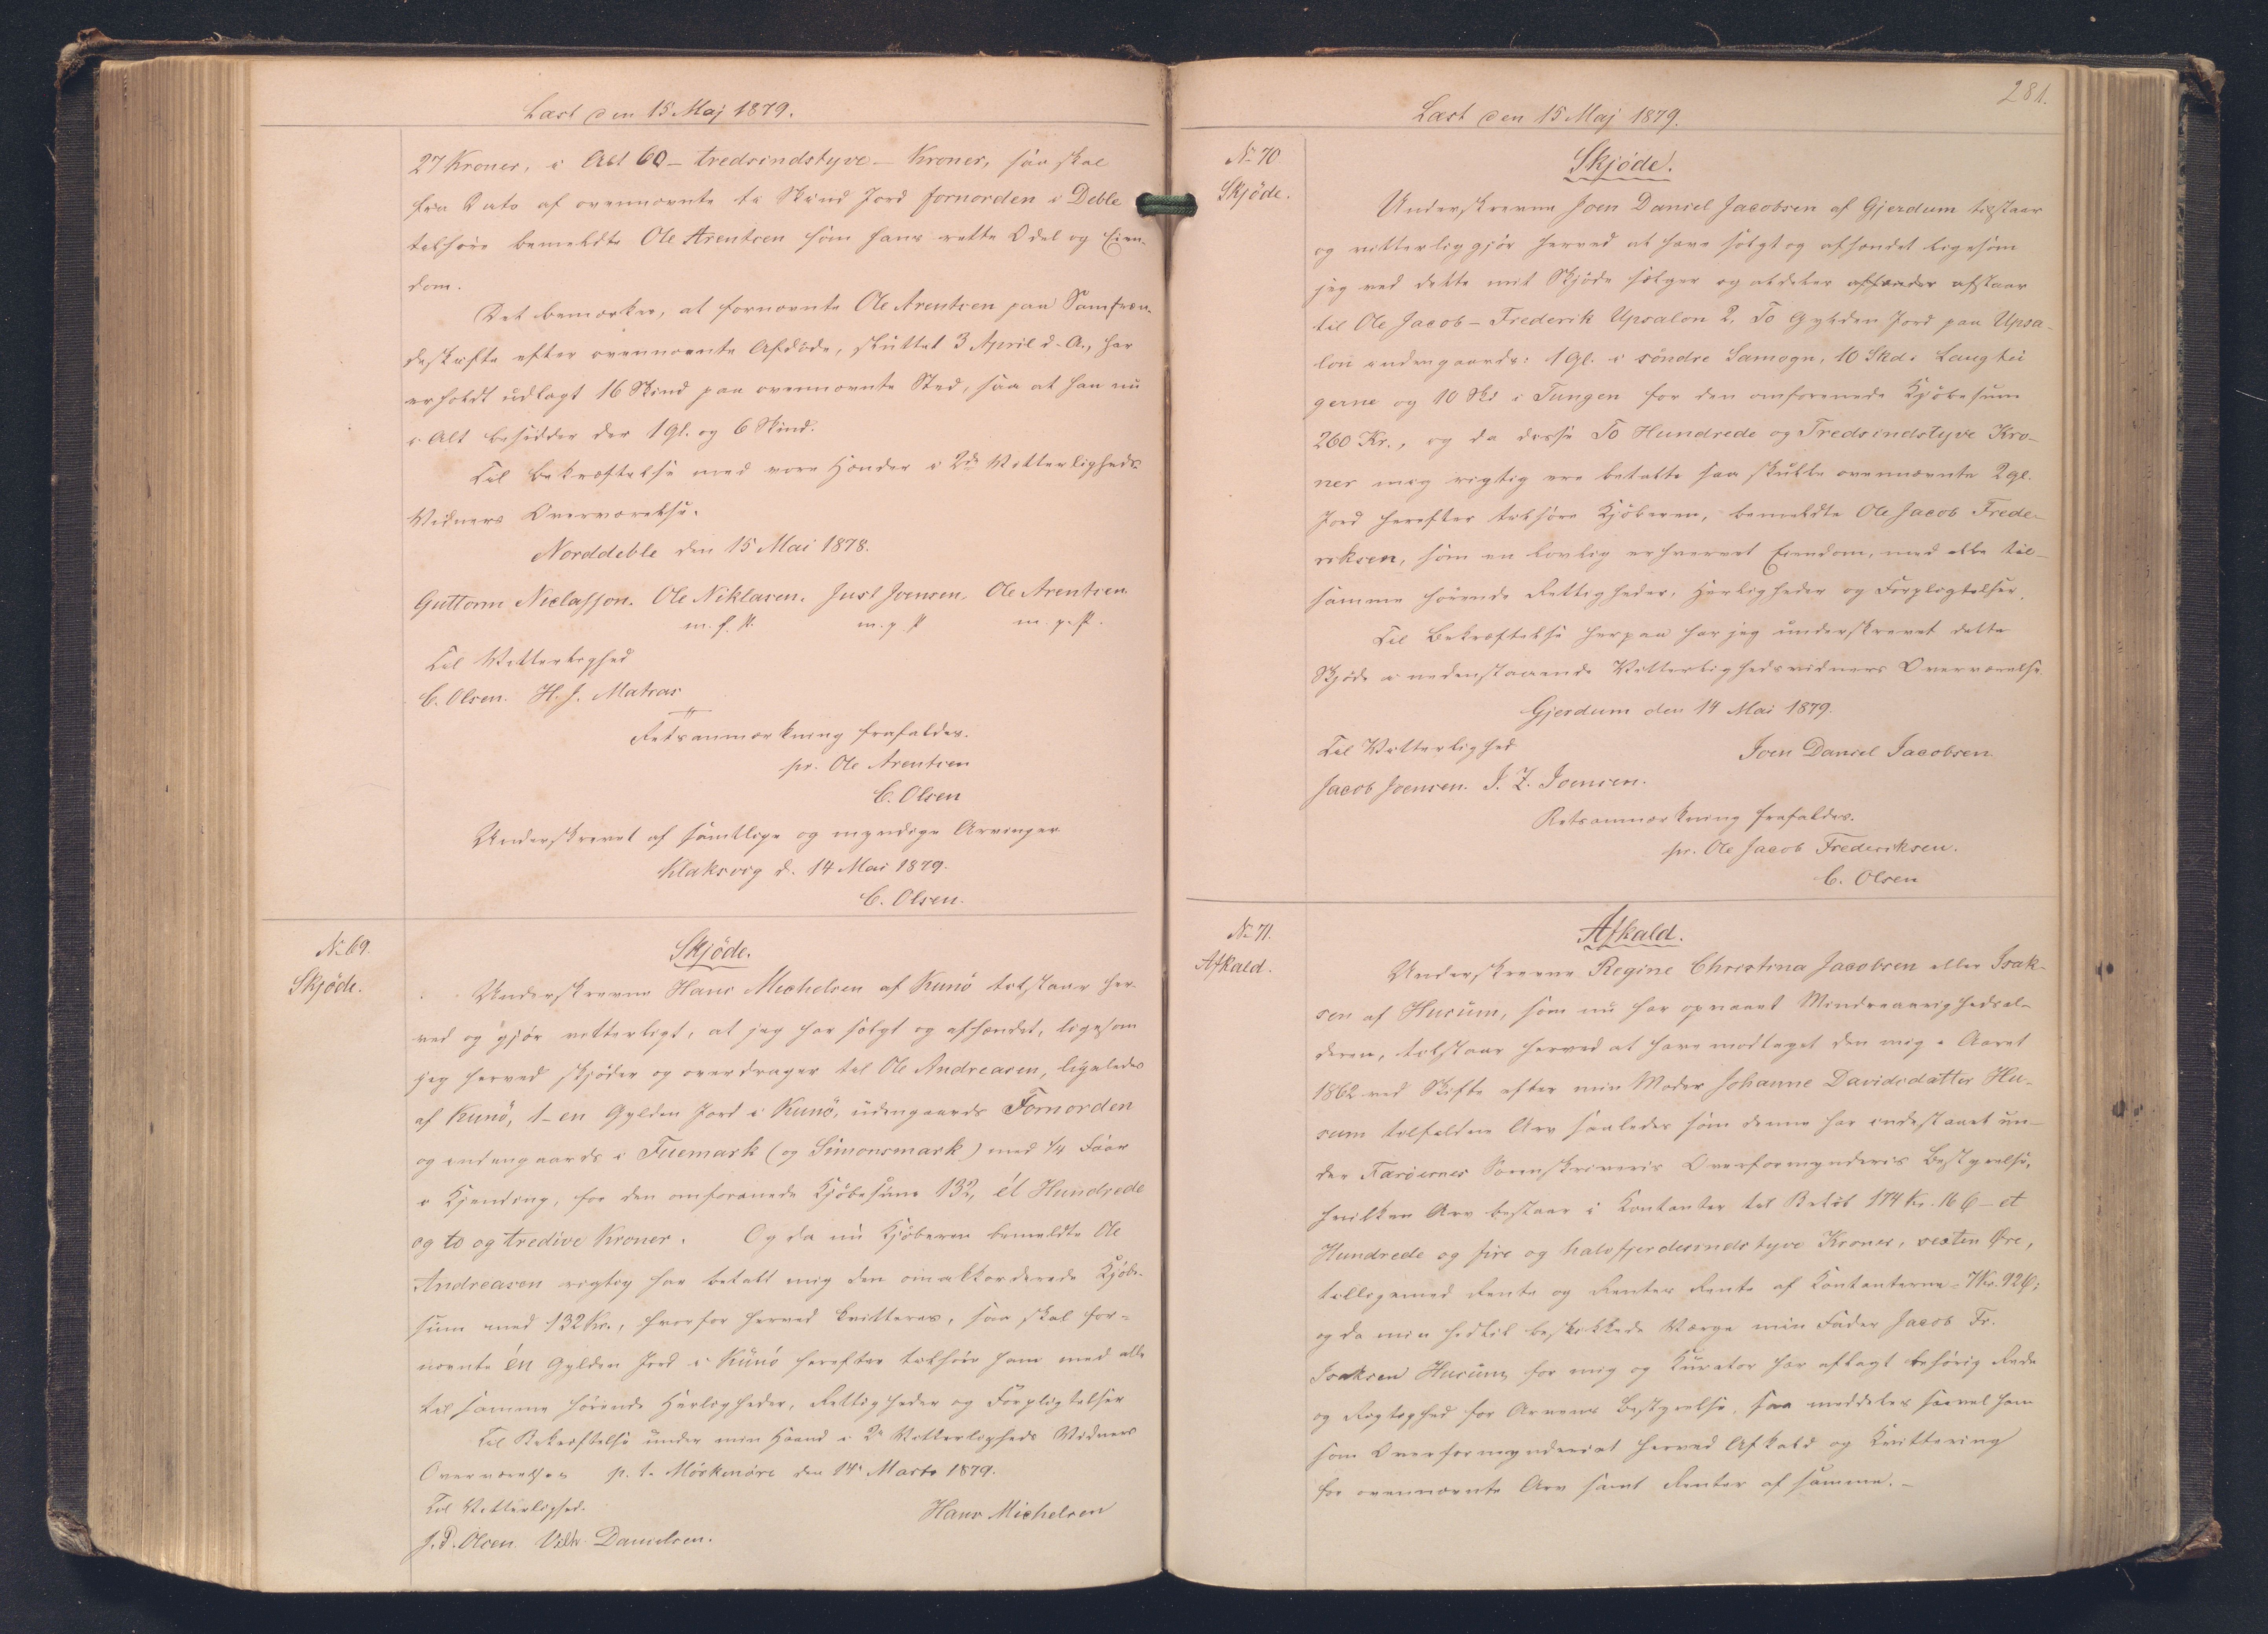 Læst den 15 Maj 1879.
27 Kroner, i Alt 60 - tredsindstyve - Kroner, saa skal
fra Dato af ovennævnte ti Skind Jord fornorden i Deble
tilhøre bemeldte Ole Arentsen som hans rette Odel og Eien-
dom.
Det bemærkes, at fornævnte Ole Arentsen paa Samfræn-
deskifte efter ovennævnte Afdøde, sluttet 3 April d. A., har
erholdt udlagt 16 Skind paa ovennævnte Sted, saa at han nu
i Alt besidder der 1 Gl. og 6 Skind.
Til Bekræftelse med vore Hænder i 2de Vitterligheds
Vidners Overværelse.
Norddeble den 15 Mai 1878.
Guttorm Niclassen. Ole Niklasen. Just Joensen. Ole Arentsen
m. f. P. m. p. P m. p. P.
Til Vitterlighed
C. Olsen. H. J. Matras
Retsanmærkning frafaldes.
pr. Ole Arentsen
C. Olsen
Underskrevet af samtlige og myndige Arvinger
Klaksvig d. 14 Mai 1879.
C. Olsen.
No 69.
Skjöde.
Skjöde.
Underskrevne Hans Michelsen af Kunö tilstaar her-
ved og gjör vitterligt, at jeg har solgt og afhændet, ligesom
jeg herved skjöder og overdrager til Ole Andreasen, ligeledes
af Kunö, 1 - en Gylden Jord i Kunö, udengaards Fornorden
og indengaards i Tuemark (og Simonsmark) med 1/4 Faar
i Kjending, for den omforenede Kjöbesum 132, ét Hundrede
og to og tredive Kroner. Og da nu Kjöberen bemeldte Ole
Andreasen rigtig har betalt mig den omakkorderede Kjöbe-
sum med 132 Kr., hvorfor herved kvitteres, saa skal for-
nævnte én Gylden Jord i Kunö herefter tilhöre ham med alle
til samme hörende Herligheder, Rettigheder og Forpligtelser
Til Bekræftelse under min Haand i 2de Vitterligheds Vidners
Overværelse p. t. Mörkenöre den 14 Marts 1879.
Til Vitterlighed. Hans Michelsen
J. P. Olsen Vilh. Danielsen.
281.
Læst den 15 Maj 1879.
No 70
Skjöde.
Skjöde.
Underskrevne Joen Daniel Jacobsen af Gjerdum tilstaar
og vitterliggjör herved at have solgt og afhændet ligesom
jeg ved dette mit Skjöde sælger og aldeles afhænder afstaar
til Ole Jacob - Frederik Upsalon 2, To Gylden Jord paa Upsa-
lon indengaards: 1 Gl. i söndre Samogn, 10 Skd. i Laugtei
gerne og 10 Skd i Tungen for den omforenede Kjöbesum
260 Kr., og da disse To Hundrede og Tredsindstyve Kro-
ner mig rigtig ere betalte saa skulle ovennævnte 2 gl.
Jord herefter tilhöre Kjöberen, bemeldte Ole Jacob Frede-
riksen, som en lovlig erhvervet Eiendom, med alle til-
samme hörende Rettigheder, Herligheder og Forpligtelser.
Til Bekræftelse herpaa har jeg underskrevet dette
Skjöde i nedenstaaende Vitterlighedsvidners Overværelse
Gjerdum den 14 Mai 1879.
Til Vitterlighed Joen Daniel Jacobsen.
Jacob Joensen. J. Z. Joensen.
Retsanmærkning frafaldes.
pr. Ole Jacob Frederiksen.
C. Olsen
No 71.
Afkald.
Afkald.
Underskrevne Regine Christina Jacobsen eller Isak-
sen af Husum, som nu har opnaaet Mindreaarighedsal-
deren, tilstaar herved at have modtaget den mig i Aaret
1862 ved Skifte efter min Moder Johanne Davidsdatter Hu-
sum tilfaldne Arv saaledes som denne har indestaaet un-
der Færöernes Sorenskriveris Overformynderis Bestyrelse,
hvilken Arv bestaar i Kontanter til Belöb 174 Kr. 16 Ø - et
Hundrede og fire og halvfjerdesindstyve Kroner, sexten Øre,
tilligemed Rente og Renters Rente af Kontanterne - 7 Kr. 92 Ø;
og da min hidtil beskikkede Værge min Fader Jacob Fr.
Isaksen Husum, for mig og Kurator har aflagt behörig Rede
og Rigtighed for Arvens Bestyrelse, saa meddeles saavel ham
som Overformynderiet herved Afkald og Kvittering
for ovennævnte Arv samt Renter af samme. -